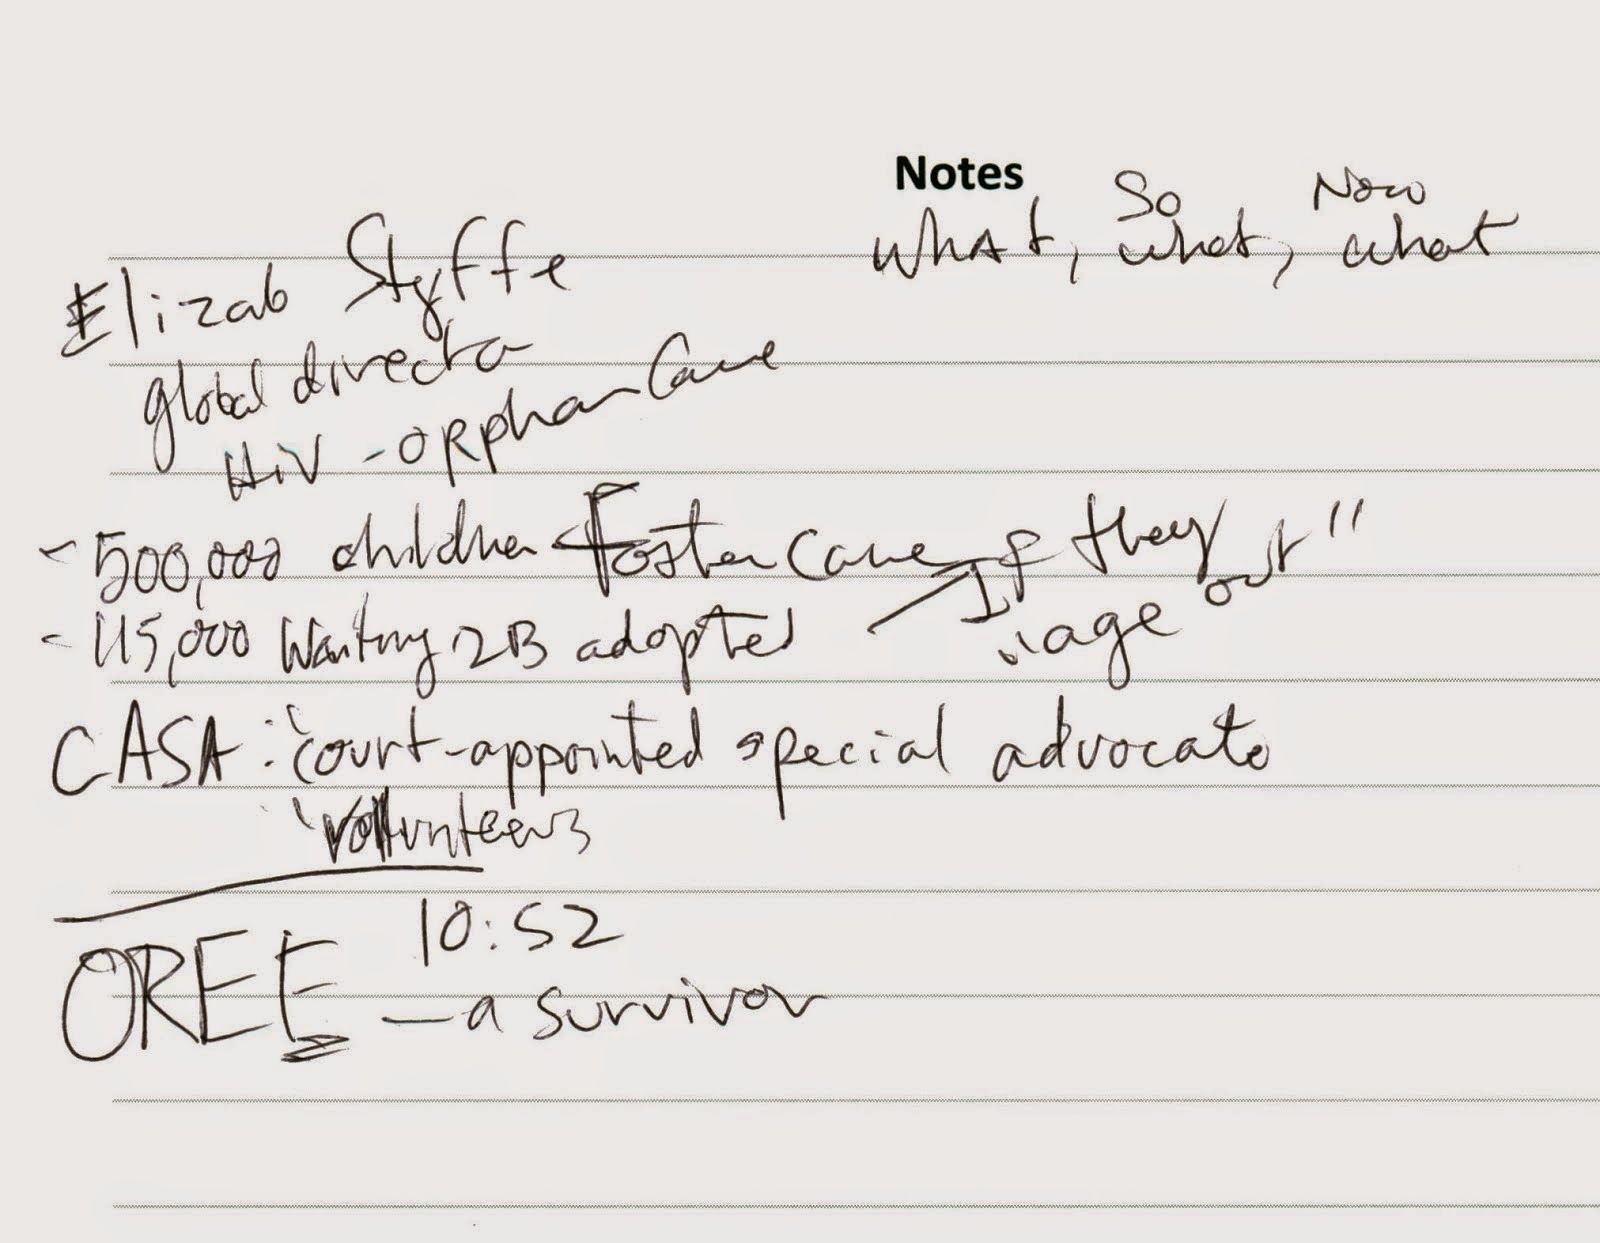 Notes
So Now
What, what, what
Elizab Styffe
global director
HIV - ORphan Care
- 500,000 children Foster Care
- 115,000 Waiting 2B adopted → If they
"age out"
CASA: "court-appointed special advocate
" volunteers
10:52
OREE - a survivor